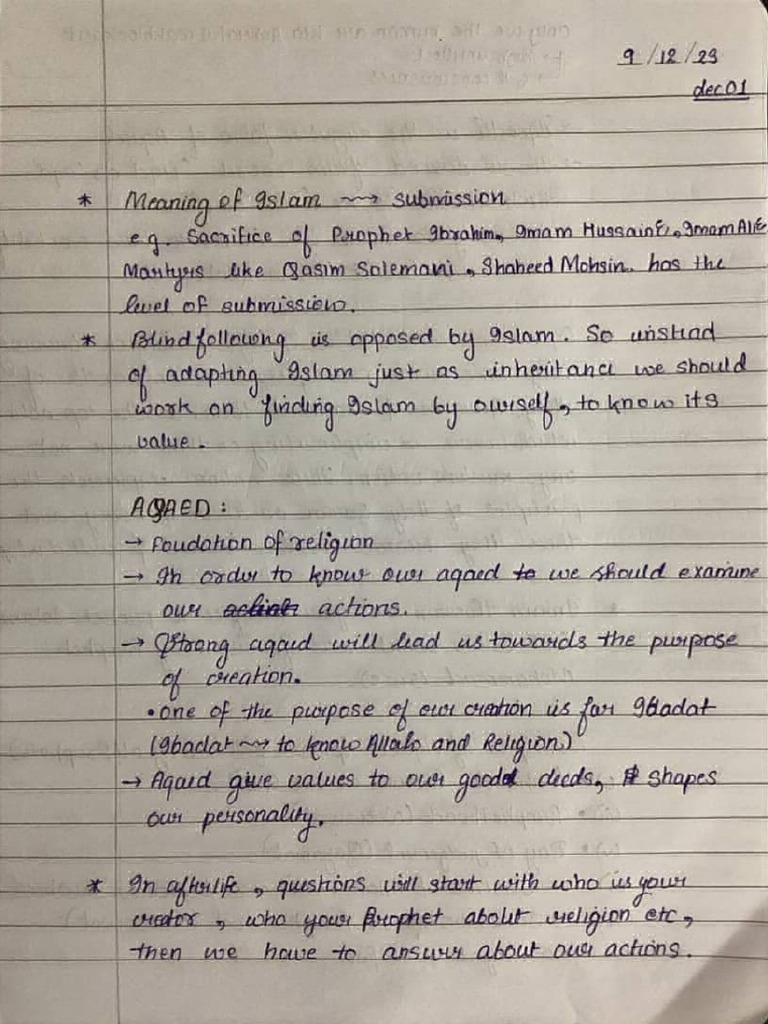 9/12/23
dec01
* Meaning of Islam ⇝ submission
e.g. Sacrifice of Prophet Ibrahim, Imam Hussain, Imam Ali
Martyrs like Qasim Solemani, Shaheed Mohsin. has the
level of submission.
* Blind following is opposed by Islam. So instead
of adapting Islam just as inheritance we should
work on finding Islam by ourself, to know its
value.
AQAED :
→ Foudation of religion
→ In order to know our aqaed to we should examine
our actions.
→ Strong aqaed will lead us towards the purpose
of creation.
• one of the purpose of our creation is for Ibadat
(Ibadat ⇝ to know Allah and Religion)
→ Aqaed give values to our good deeds, shapes
our personality.
* In afterlife, questions will start with who is your
creator, who your Prophet about religion etc,
then we have to answer about our actions.